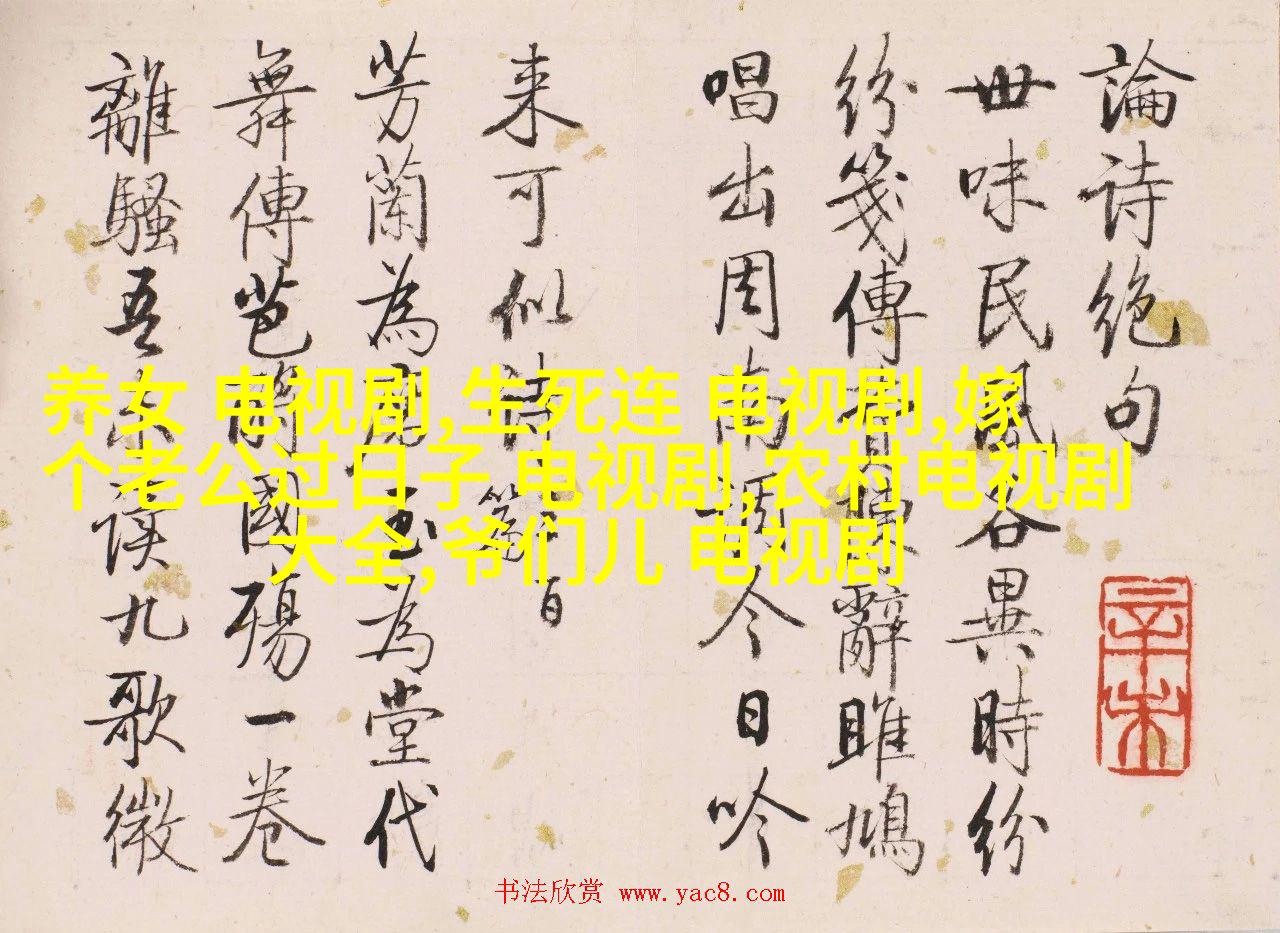 論诗絶句
世味民風各異時纷
纷笺傳辭雎鳩
唱出周南調今日吟
来可似诗
芳蘭為玉為堂代
舞傳芭國殤一卷
離騷吾读九歌微
辛未
养女 电视剧,生死连 电视剧,嫁
个老公过日子 电视剧,农村电视剧
大全,爷们儿 电视剧
书法欣赏 www.yac8.com